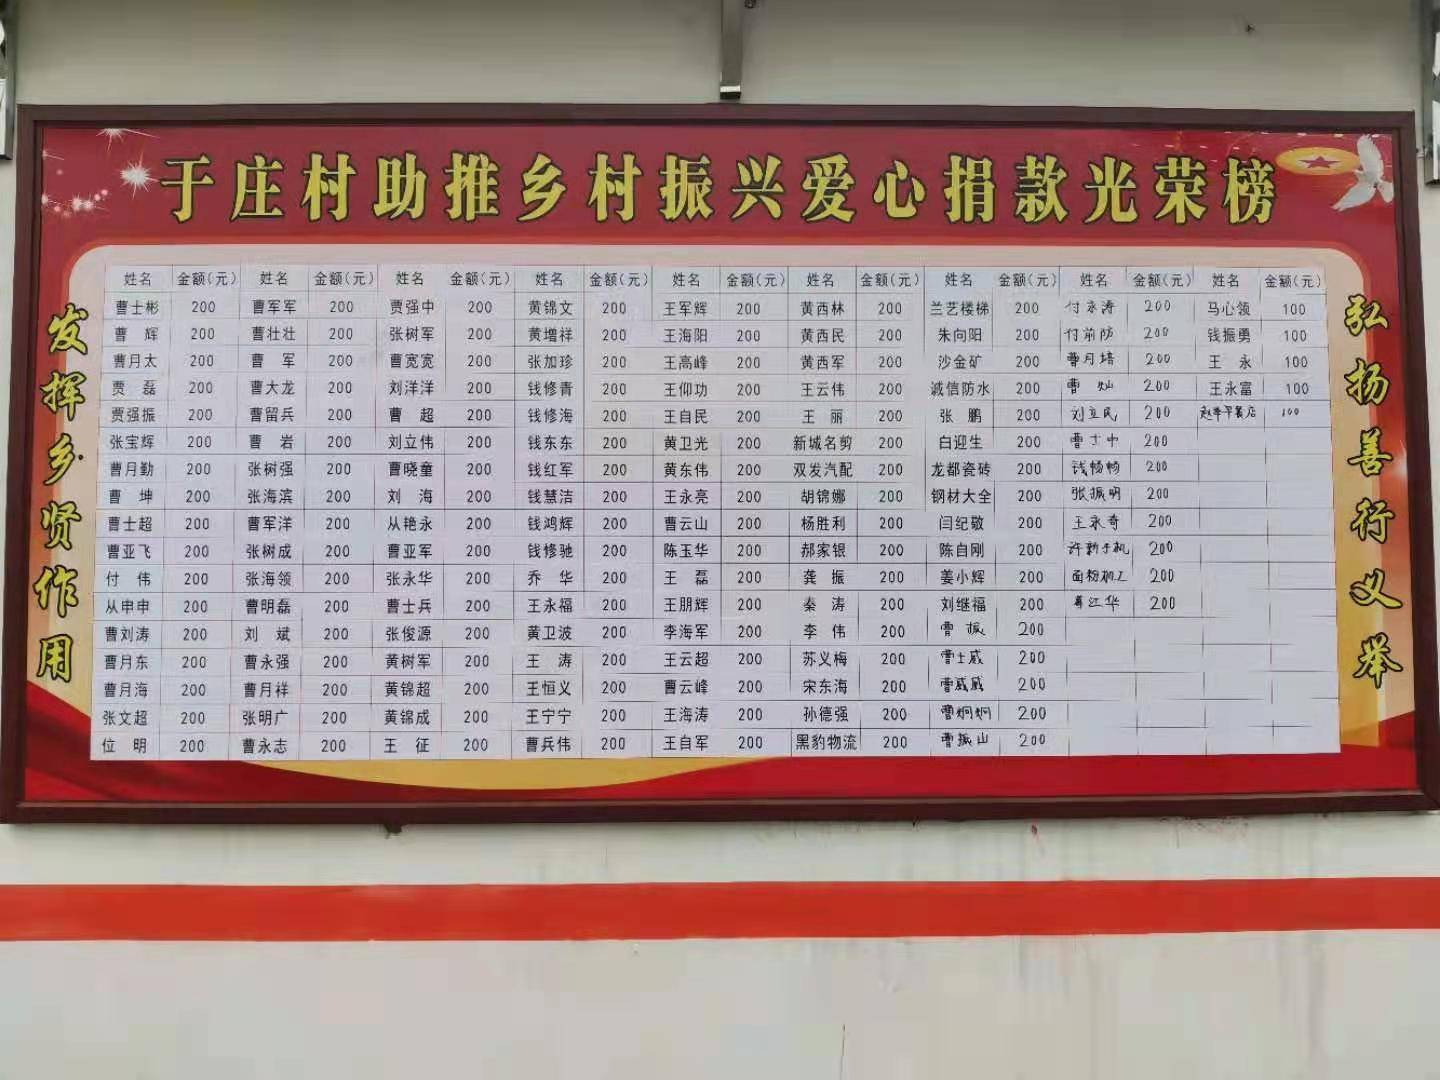 于庄村助推乡村振兴爱心捐款光荣榜
发挥乡贤作用
姓名 金额(元) 姓名 金额(元) 姓名 金额(元) 姓名 金额(元) 姓名 金额(元) 姓名 金额(元) 姓名 金额(元) 姓名 金额(元) 姓名 金额(元)
曹士彬 200 曹军军 200 贾强中 200 黄锦文 200 王军辉 200 黄西林 200 兰艺楼梯 200 付永涛 200 马心领 100
曹辉 200 曹壮壮 200 张树军 200 黄增祥 200 王海阳 200 黄西民 200 朱向阳 200 付前防 200 钱振勇 100
曹月太 200 曹军 200 曹宽宽 200 张加珍 200 王高峰 200 黄西军 200 沙金矿 200 曹月培 200 王永 100
贾磊 200 曹大龙 200 刘洋洋 200 钱修青 200 王仰功 200 王云伟 200 诚信防水 200 曹灿 200 王永富 100
贾强振 200 曹留兵 200 曹超 200 钱修海 200 王自民 200 王丽 200 张鹏 200 刘立民 200 100
张宝辉 200 曹岩 200 刘立伟 200 钱东东 200 黄卫光 200 新城名剪 200 白迎生 200 曹士中 200
曹月勤 200 张树强 200 曹晓童 200 钱红军 200 黄东伟 200 双发汽配 200 龙都瓷砖 200 钱畅畅 200
曹坤 200 张海滨 200 刘海 200 钱慧洁 200 王永亮 200 胡锦娜 200 钢材大全 200 张振明 200
曹士超 200 曹军洋 200 从艳永 200 钱鸿辉 200 曹云山 200 杨胜利 200 闫纪敬 200 王永奇 200
曹亚飞 200 张树成 200 曹亚军 200 钱修驰 200 陈玉华 200 郝家银 200 陈自刚 200 许新手机 200
付伟 200 张海领 200 张永华 200 乔华 200 王磊 200 龚振 200 姜小辉 200 面粉加工 200
从申申 200 曹明磊 200 曹士兵 200 王永福 200 王朋辉 200 秦涛 200 刘继福 200 江华 200
曹刘涛 200 刘斌 200 张俊源 200 黄卫波 200 李海军 200 李伟 200 曹振 200
曹月东 200 曹永强 200 黄树军 200 王涛 200 王云超 200 苏义梅 200 曹士威 200
曹月海 200 曹月祥 200 黄锦超 200 王恒义 200 曹云峰 200 宋东海 200 曹威威 200
张文超 200 张明广 200 黄锦成 200 王宁宁 200 王海涛 200 孙德强 200 曹炯炯 200
位明 200 曹永志 200 王征 200 曹兵伟 200 王自军 200 黑豹物流 200 曹振山 200
弘扬善行义举